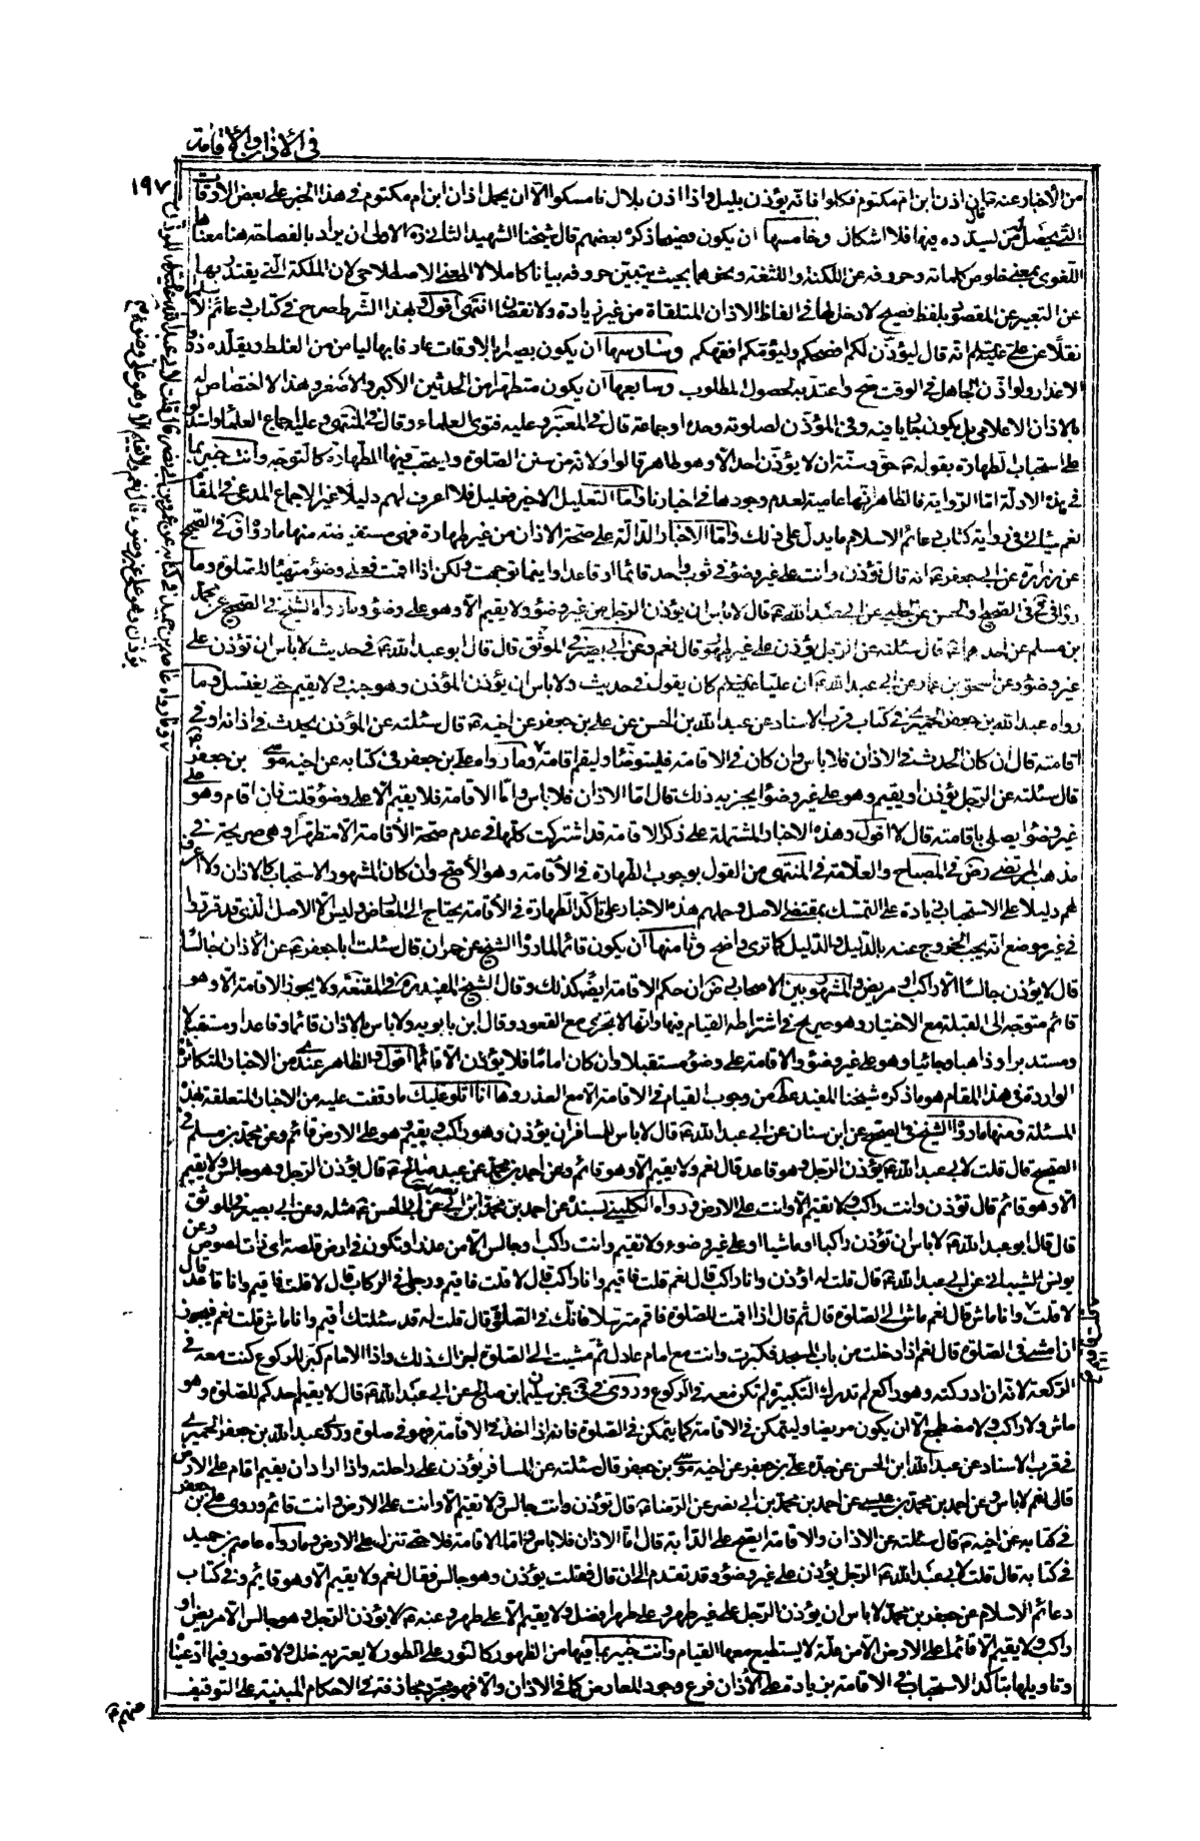 في الأذان والإقامة
١٩٧
من الأخبار عنه ان اذن ابن ام مكتوم فكلوا فانه يؤذن بليل واذا اذن بلال فامسكوا الا ان يحمل اذان ابن ام مكتوم في هذا الخبر على بعض الأوقات
فيها فلا اشكال وخامسها ان يكون فصيحا ذكره بعضهم قال شيخنا الشهيد الثاني ره الاولى ان يراد بالفصاحة هنا معناها
اللغوي بمعنى خلوص كلماته وحروفه عن اللكنة واللثغة ونحوهما بحيث يتبين حروفه بيانا كاملا لا المعنى الاصطلاحي لان الملكة التي يقتدر بها
عن التعبير عن المقصود بلفظ فصيح لا دخل لها في الفاظ الاذان المتلقاة من غير زيادة ولا نقصان انتهى اقول وبهذا الشرط صرح في كتاب دعائم الا
نقلا عن علي عليه السلم انه قال ليؤذن لكم افصحكم وليؤمكم افقهكم وسادسها ان يكون بصيرا بالاوقات عارفا بها ليأمن من الغلط ويقلده ذو
الاعذار ولو اذن الجاهل في الوقت صح واعتد به لحصول المطلوب وسابعها ان يكون متطهرا من الحدثين الاكبر والاصغر وهذا لا اختصاص له
بالاذان الاعلامي بل يكون جاريا فيه وفي المؤذن لصلوته وحده او جماعة قال في المعتبر وعليه فتوى العلماء وقال في المنتهى وعليه اجماع العلماء واستدلوا
على استحباب الطهارة بقوله حق وسنة ان لا يؤذن احد الا وهو طاهر قالوا ولانه من سنن الصلوة ويستحب فيها الطهارة كالتوجه وانت خبير بما
في هذه الادلة اما الرواية فالظاهر انها عامية لعدم وجودها في اخبارنا واما التعليل الاخير فعليل فلا اعرف لهم دليلا غير الاجماع المدعى في المقام
نعم سيأتي في رواية كتاب دعائم الاسلام ما يدل على ذلك واما الاخبار الدالة على صحة الاذان من غير طهارة فهي مستفيضة منها ما رواه في الصحيح
عن زرارة عن ابي جعفر انه قال تؤذن وانت على غير وضوء في ثوب واحد قائما او قاعدا واينما توجهت ولكن اذا اقمت فعلى وضوء متهيئا للصلوة وما
رواه في الصحيح او الحسن عن الحلبي عن ابي عبد الله قال لا باس ان يؤذن الرجل من غير وضوء ولا يقيم الا وهو على وضوء وما رواه الشيخ في الصحيح عن محمد
بن مسلم عن احدهما قال سئلته عن الرجل يؤذن على غير طهور قال نعم وعن ابي بصير في الموثق قال قال ابو عبد الله في حديث لا باس ان تؤذن على
غير وضوء وعن اسحق بن عمار عن ابي عبد الله ان عليا عليه السلم كان يقول في حديث ولا باس ان يؤذن المؤذن وهو جنب ولا يقيم حتى يغتسل وما
رواه عبد الله بن جعفر الحميري في كتاب قرب الاسناد عن عبد الله بن الحسن عن علي بن جعفر عن اخيه قال سئلته عن المؤذن يحدث في اذانه او في
اقامته قال ان كان الحدث في الاذان فلا باس وان كان في الاقامة فليتوضأ وليقم اقامته وما رواه علي بن جعفر في كتابه عن اخيه موسى بن جعفر
قال سئلته عن الرجل يؤذن او يقيم وهو على غير وضوء ايجزيه ذلك قال اما الاذان فلا باس واما الاقامة فلا يقيم الا على وضوء قلت فان اقام وهو على
غير وضوء ايصلي باقامته قال لا اقول وهذه الاخبار المشتملة على ذكر الاقامة قد اشتركت كلها في عدم صحة الاقامة الا متطهرا وهي صريحة في
مذهب المرتضى رض في المصباح والعلامة في المنتهى من القول بوجوب الطهارة في الاقامة وهو الاصح وان كان المشهور الاستحباب كالاذان ولا اعرف
لهم دليلا على الاستحباب زيادة على التمسك بمقتضى الاصل وحملهم هذه الاخبار على تأكد الطهارة في الاقامة يحتاج الى المعارض وليس الا الاصل الذي قد قرروا
في غير موضع انه يجب الخروج عنه بالدليل والدليل كما ترى واضح وثامنها ان يكون قائما لما رواه الشيخ عن حمران قال سئلت ابا جعفر عن الاذان جالسا
قال لا يؤذن جالسا الا راكب او مريض والمشهور بين الاصحاب رض ان حكم الاقامة ايضا كذلك وقال الشيخ المفيد ره في المقنعة ولا يجوز الاقامة الا وهو
قائم متوجه الى القبلة مع الاختيار وهو صريح في اشتراط القيام فيها وانها لا تجزي مع القعود وقال ابن بابويه ولا باس بالاذان قائما وقاعدا ومستقبلا
ومستدبرا وذاهبا وجائيا وهو على غير وضوء والاقامة على وضوء مستقبلا وان كان اماما فلا يؤذن الا قائما اقول والظاهر عندي من الاخبار المتكاثرة
الواردة في هذا المقام هو ما ذكره شيخنا المفيد من وجوب القيام في الاقامة الا مع العذر وها انا اتلو عليك ما وقفت عليه من الاخبار المتعلقة بهذه
المسئلة ومنها ما رواه الشيخ في الصحيح عن ابن سنان عن ابي عبد الله قال لا باس للمسافر ان يؤذن وهو راكب ويقيم وهو على الارض قائم وعن محمد بن مسلم في
الصحيح قال قلت لابي عبد الله يؤذن الرجل وهو قاعد قال نعم ولا يقيم الا وهو قائم وعن احمد بن محمد عن عبد صالح قال يؤذن الرجل وهو جالس ولا يقيم
الا وهو قائم قال تؤذن وانت راكب ولا تقيم الا وانت على الارض ورواه الكليني بسنده عن احمد بن محمد ابن ابي نصر عن ابي الحسن مثله وعن ابي بصير في الموثق
قال قال ابو عبد الله لا باس ان تؤذن راكبا او ماشيا او على غير وضوء ولا تقيم وانت راكب او جالس الا من علة او تكون في ارض ملصة اي ذات لصوص وعن
يونس الشيباني عن ابي عبد الله قال قلت له اؤذن وانا راكب قال نعم قلت فاقيم وانا راكب قال لا قلت فاقيم ورجلي في الركاب قال لا قلت فاقيم وانا قاعد قال
لا قلت وانا ماش قال نعم ماش الى الصلوة قال ثم قال اذا اقمت للصلوة فاقم مترسلا فانك في الصلوة قال قلت له قد سئلتك اقيم وانا ماش قلت نعم فيجوز
ان امشي في الصلوة قال نعم اذا دخلت من باب المسجد فكبرت وانت مع امام عادل ثم مشيت الى الصلوة اجزاك ذلك واذا الامام كبر للركوع كنت معه في
الركعة لانه ان ادركته وهو راكع لم تدرك التكبيرة لم تكن معه في الركوع وروى في عن سليمان بن صالح عن ابي عبد الله قال لا يقيم احدكم للصلوة وهو
ماش ولا راكب ولا مضطجع الا ان يكون مريضا وليتمكن في الاقامة كما يتمكن في الصلوة فانه اذا اخذ في الاقامة فهو في صلوة وروى عبد الله بن جعفر الحميري
في قرب الاسناد عن عبد الله ابن الحسن عن جده علي بن جعفر عن اخيه موسى بن جعفر قال سئلته عن المسافر يؤذن على راحلته واذا اراد ان يقيم اقام على الارض
قال نعم لا باس وعن احمد بن محمد بن عيسى عن احمد بن محمد بن ابي نصر عن الرضا قال تؤذن وانت جالس ولا تقيم الا وانت على الارض وانت قائم وروى علي بن جعفر
في كتابه عن اخيه قال سئلته عن الاذان والاقامة ايصح على الدابة قال اما الاذان فلا باس واما الاقامة فلا حتى تنزل على الارض وما رواه عاصم بن حميد
في كتابه قال قلت لابي عبد الله الرجل يؤذن على غير وضوء وقد تقدم الى ان قال فقلت يؤذن وهو جالس فقال نعم ولا يقيم الا وهو قائم وفي كتاب
دعائم الاسلام عن جعفر بن محمد لا باس ان يؤذن الرجل على غير طهر وعلى طهر افضل ولا يقيم الا على طهر وعنه لا يؤذن الرجل وهو جالس الا مريض او
راكب ولا يقيم الا قائما على الارض الا من علة لا يستطيع معها القيام وانت خبير بما فيها من الظهور كالنور على الطور لا يعتريه خلل ولا قصور فيما ادعينا
وتاويلها بتأكد الاستحباب في الاقامة بزيادة على الاذان فرع وجود المعارض كما في الاذان والا فهو مجرد مجازفة في الاحكام المبنية على التوقيف
وما رواه عاصم بن حميد في كتابه عن عمرو بن ابي نصر قال قلت لابي عبد الله عليه السلم المؤذن
يؤذن وهو على غير وضوء قال نعم ولا يقيم الا وهو على وضوء